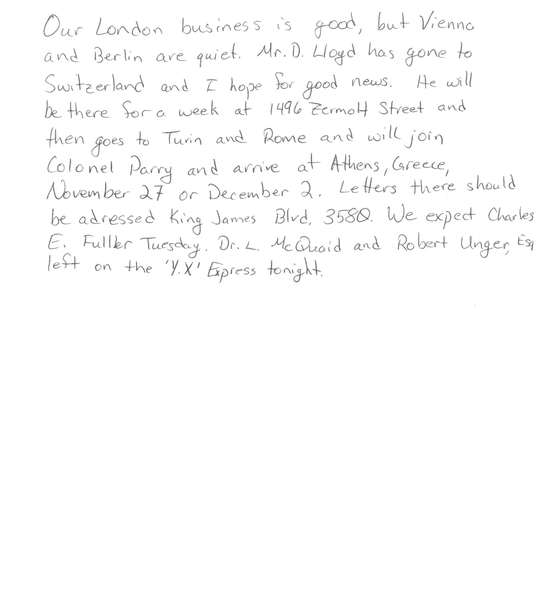 Our London business is good, but Vienna
and Berlin are quiet. Mr. D. Lloyd has gone to
Switzerland and I hope for good news. He will
be there for a week at 1496 Zermott Street and
then goes to Turin and Rome and will join
Colonel Parry and arrive at Athens, Greece,
November 27 or December 2. Letters there should
be adressed King James Blvd, 3580. We expect Charles
E. Fuller Tuesday. Dr. L. McQuaid and Robert Unger, Esq
left on the 'Y.X' Express tonight.